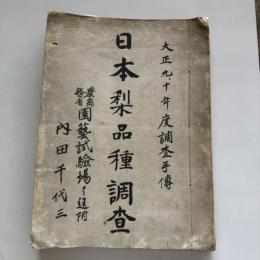 大正九、十年度調査手傳
日本梨品種調査
農商務省園藝試験場ヨリ送附
内田千代三